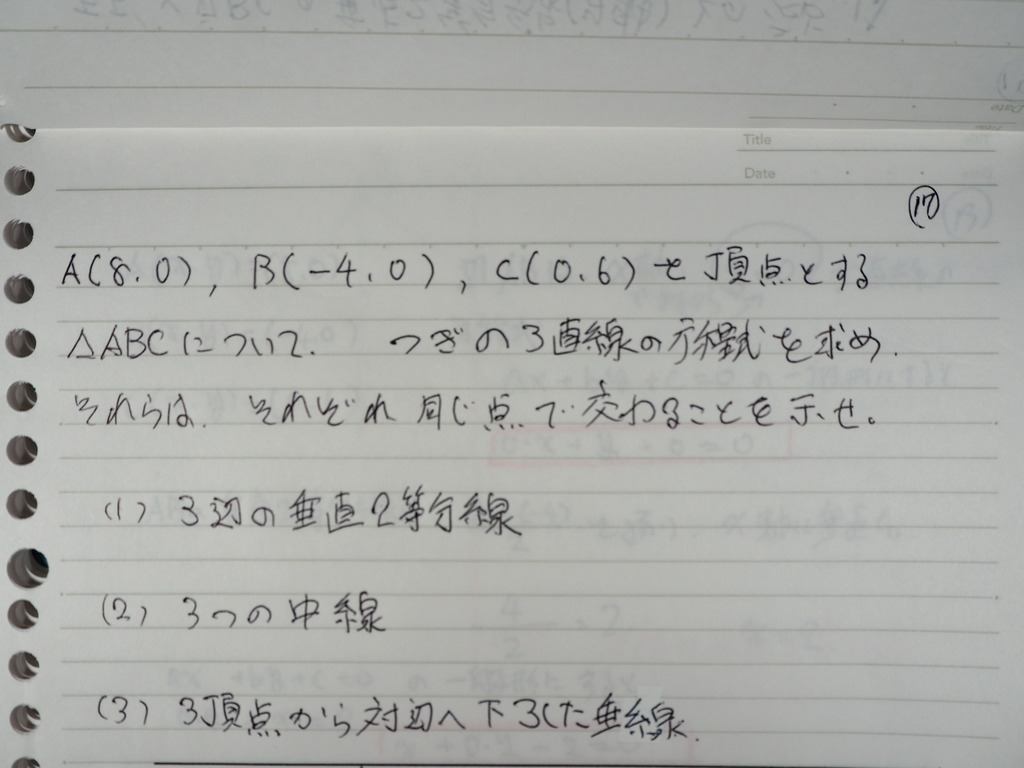 Title
Date
⑰
A(8.0), B(-4.0), C(0.6)を頂点とする
△ABCについて. つぎの3直線の方程式を求め.
それらは. それぞれ同じ点で交わることを示せ。
(1) 3辺の垂直2等分線
(2) 3つの中線
(3) 3頂点から対辺へ下ろした垂線.